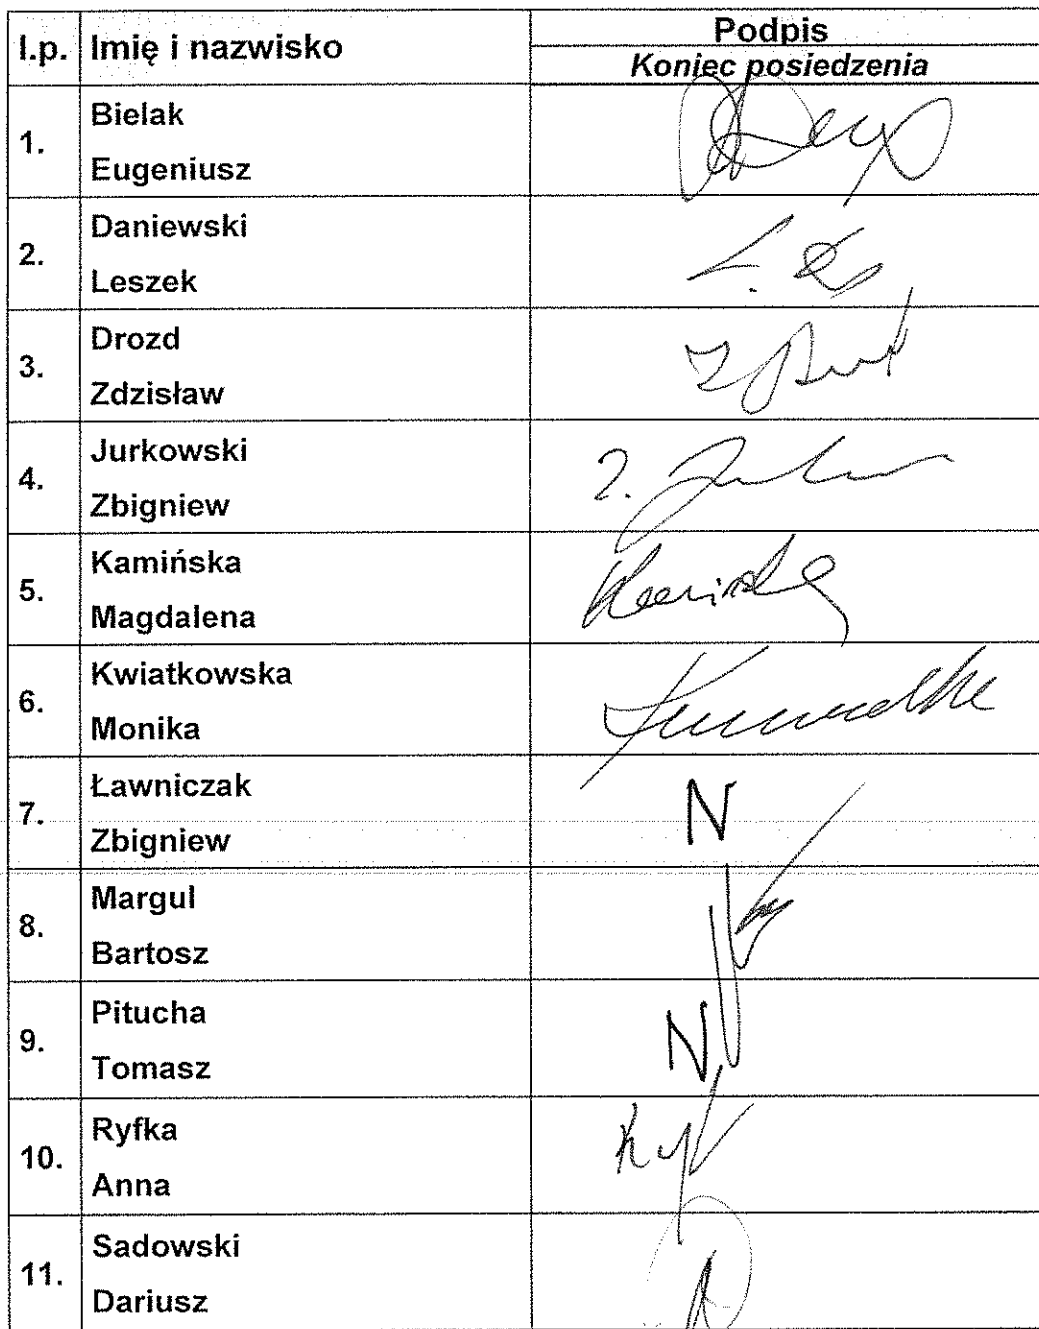 l.p. Imię i nazwisko Podpis
Koniec posiedzenia
1. Bielak
Eugeniusz
2. Daniewski
Leszek
3. Drozd
Zdzisław
4. Jurkowski
Zbigniew
5. Kamińska
Magdalena
6. Kwiatkowska
Monika
7. Ławniczak
Zbigniew
N
8. Margul
Bartosz
9. Pitucha
Tomasz
N
10. Ryfka
Anna
11. Sadowski
Dariusz